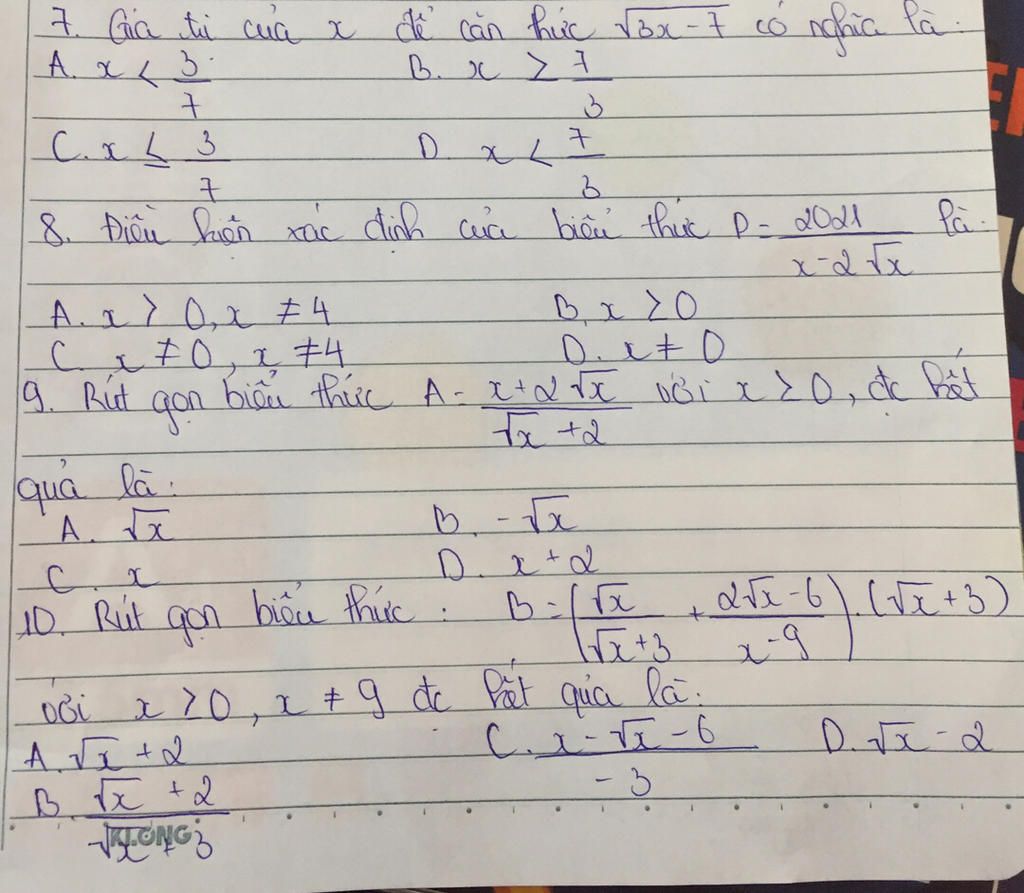 7. Giá tri của x để căn thức √(3x-7) có nghĩa là:
A. x < 3/7 B. x ≥ 7/3
C. x ≤ 3/7 D. x < 7/3
8. Điều kiện xác định của biểu thức P = 2021/(x-2√x) là:
A. x > 0, x ≠ 4 B. x ≥ 0
C. x ≠ 0, x ≠ 4 D. x ≠ 0
9. Rút gọn biểu thức A = (x+2√x)/(√x+2) với x ≥ 0, đc kết
quả là:
A. √x B. -√x
C. x D. x+2
10. Rút gọn biểu thức: B = (√x/(√x+3) + (2√x-6)/(x-9)).(√x+3)
với x ≥ 0, x ≠ 9 đc kết quả là:
A. √x + 2 C. (x-√x-6)/-3 D. √x - 2
B. (√x+2)/(√x+3)
KLONG